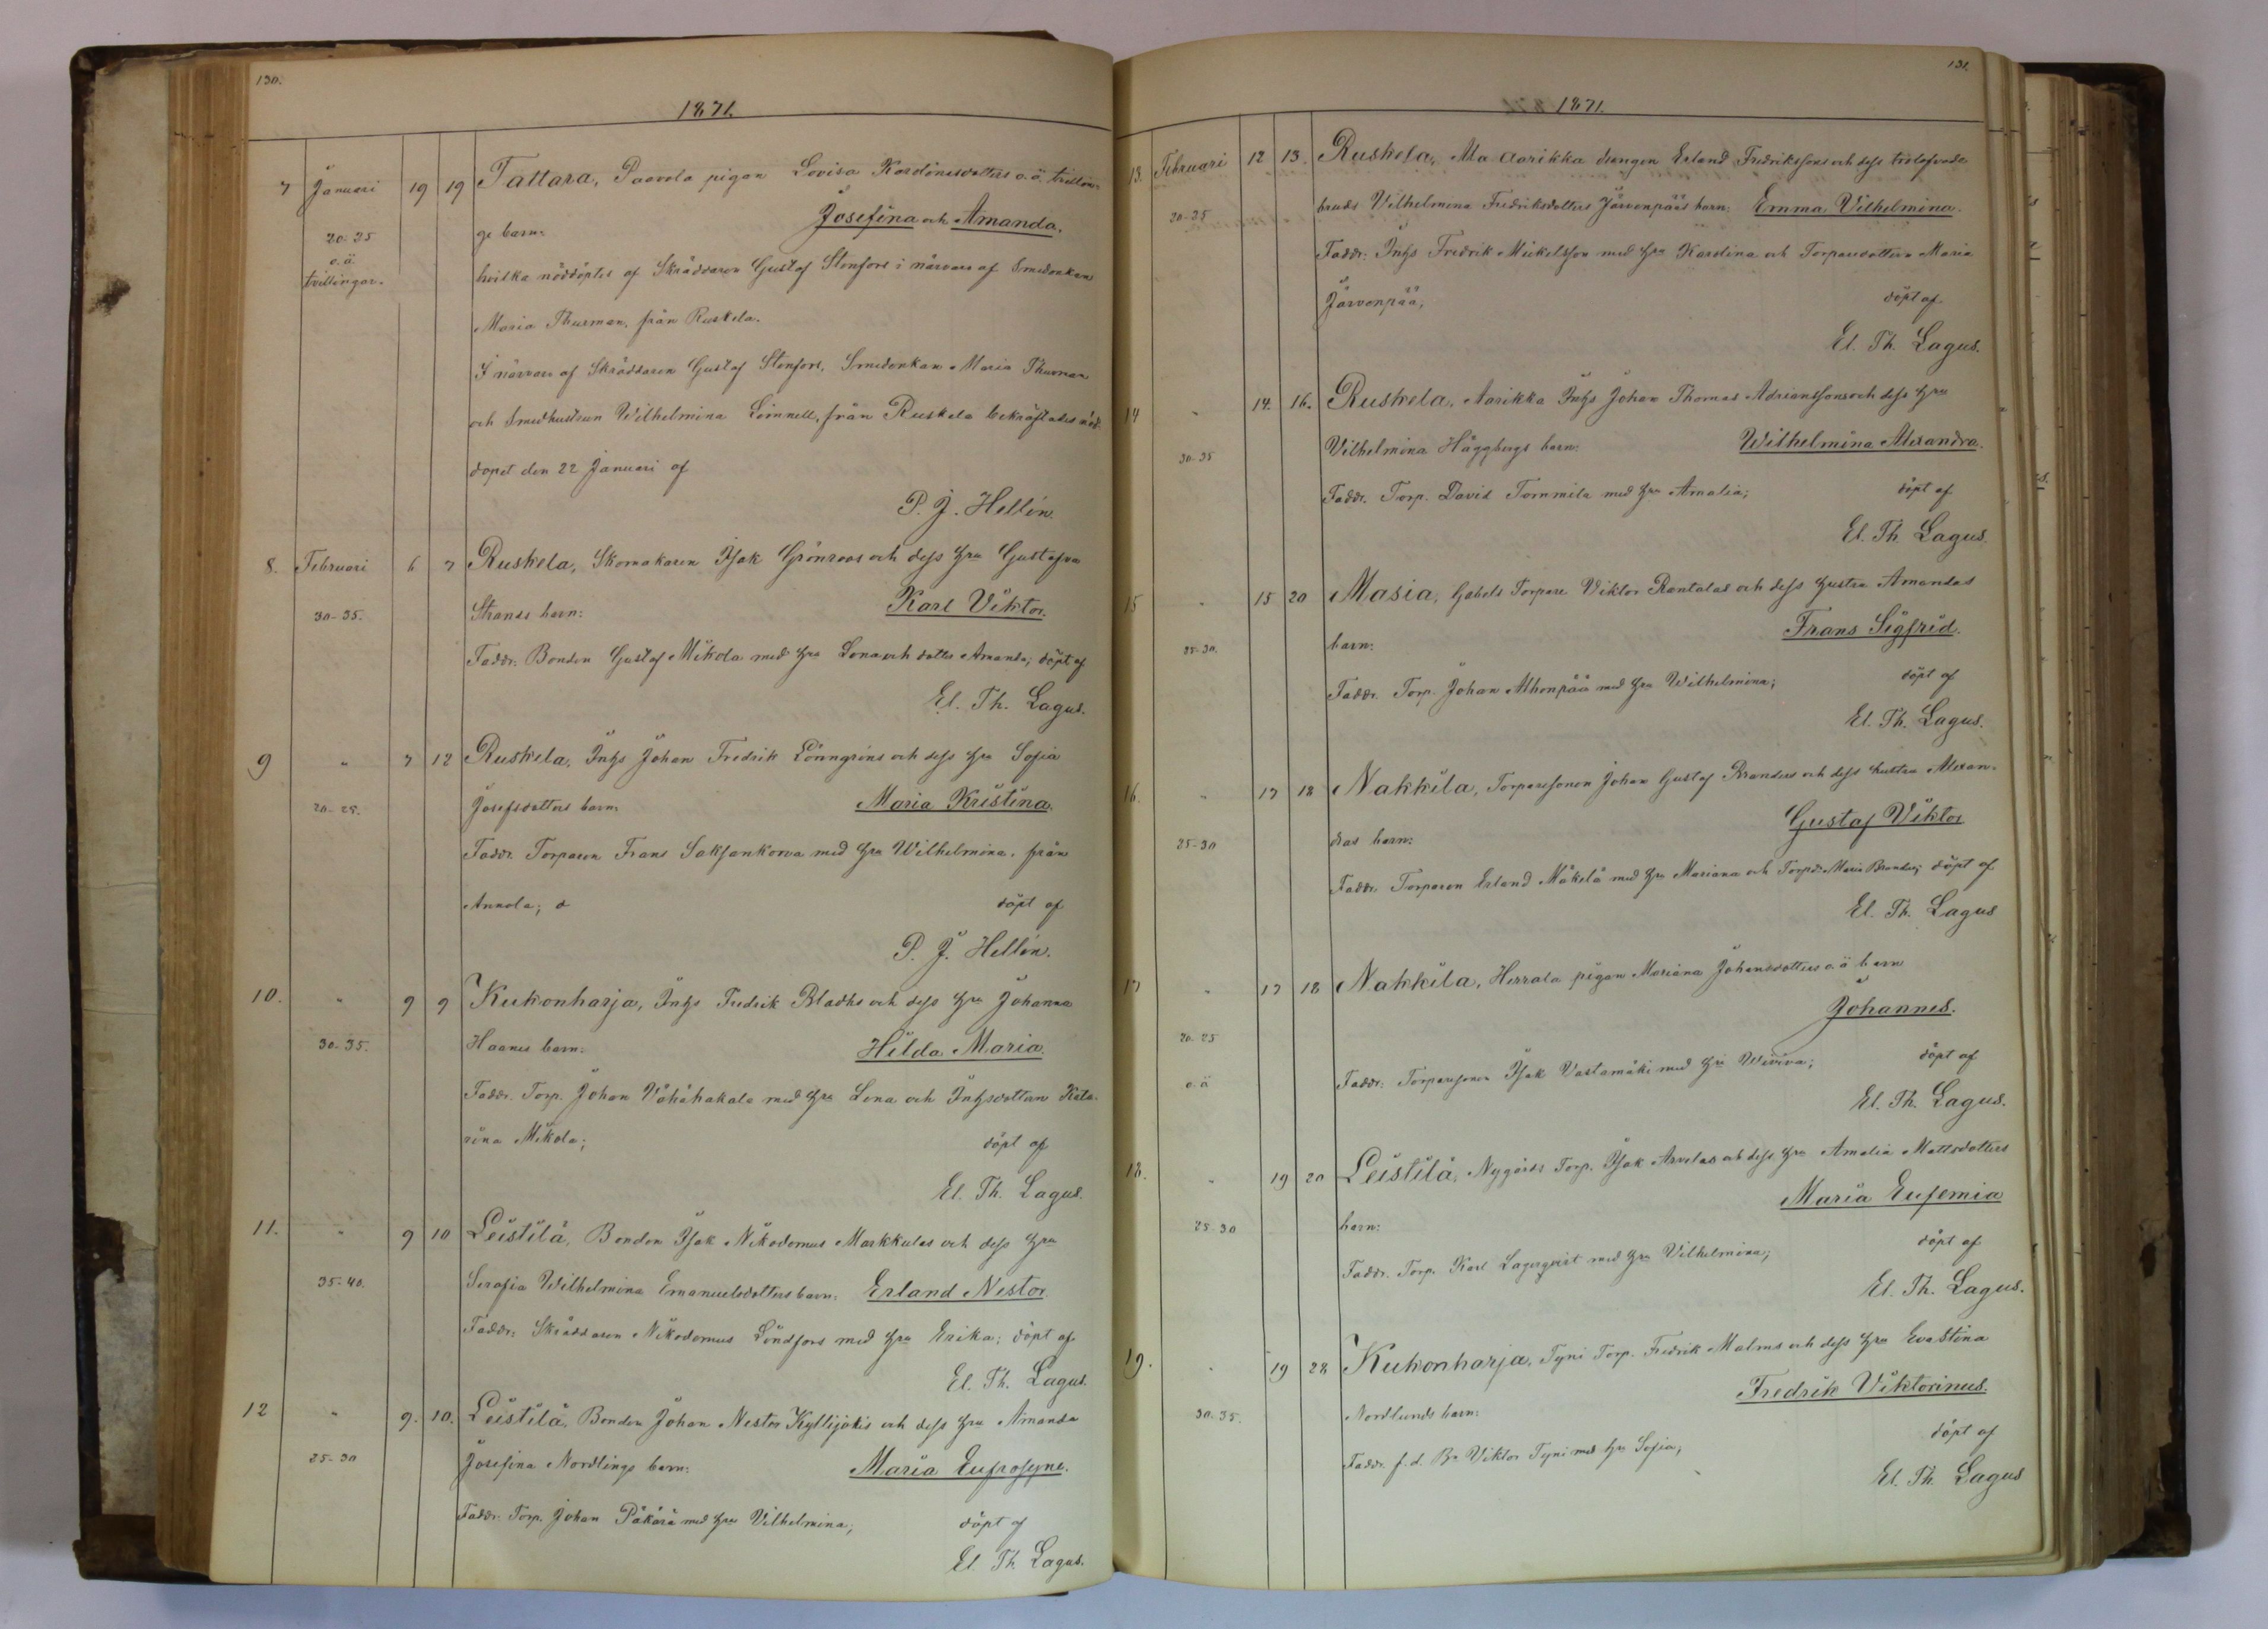 130.
1871.
7 Januari 19 19 Tattara, Paavola pigan Lovisa Karolinesdotters o.ä. tvillin-
20-25 ge barn: Josefina och Amanda.
o.ä. tvillingar. hvilka nöddöptes af Skräddaren Gustaf Stenfors i närvaro af Smedenkan
Maria Thurman, från Ruskela.
I närvaro af Skräddaren Gustaf Stenfors, Smedenkan Maria Thurman
och Smedhustrun Wilhelmina från Ruskela bekräftades nöd-
dopet den 22 Januari af
P. J. Hellén.
8. Februari 6 7 Ruskela, Skomakaren Isak Grönroos och dess hru Gustafva
30-35. Strands barn: Karl Viktor.
Faddr: Bonden Gustaf Mikola med hru Lena och dotter Amanda; döpt af
El. Th. Lagus.
9 " 7 12 Ruskela, Inhs Johan Fredrik Lönngréns och dess hru Sofia
20-25. Josefsdotters barn: Maria Kristina.
Faddr. Torparen Frans Saksankorva med hru Wilhelmina, från
Annola; döpt af
P. J. Hellén.
10. " 9 9 Kukonharja, Inhs Fredrik Bladhs och dess hru Johanna
30-35. Haanes barn: Hilda Maria.
Faddr. Torp. Johan Vähähakala med hru Lena och Inhsdottern Kata-
rina Mikola; döpt af
El. Th. Lagus.
11. " 9 10 Leistilä, Bonden Isak Nikodemus Markkulas och dess hru
35-40. Serafia Wilhelmina Emanuelsdotters barn: Erland Nestor.
Faddr: Skräddaren Nikodemus Lindfors med hru Erika; döpt af
El. Th. Lagus.
12 " 9. 10. Leistilä, Bonden Johan Nestor Kyllijokis och dess hru Amanda
25-30 Josefina Nordlings barn: Maria Eufrosyne.
Faddr. Torp. Johan Päkärä med hru Vilhelmina; döpt af
El. Th. Lagus.
131.
1871.
13. Februari 12 13. Ruskela, Ala Aarikka drengen Erland Fredrikssons och dess trolofvade
20-25 bruds Vilhelmina Fredriksdotters Järvenpääs barn: Emma Vilhelmina.
Faddr: Inhs Fredrik Mickelsson med hru Karolina och Torparedottern Maria
Järvenpää; döpt af
El. Th. Lagus.
14 " 14. 16. Ruskela, Aarikka Inhs Johan Thomas Adrianssons och dess hru
30-35 Vilhelmina Häggbergs barn: Wilhelmina Alexandra.
Faddr. Torp. David Tommila med hru Amalia; döpt af
El. Th. Lagus.
15 " 15 20 Masia, Gabels Torpare Viktor Rantalas och dess hustru Amandas
25-30. barn: Frans Sigfrid.
Faddr. Torp. Johan Alhonpää med hru Wilhelmina; döpt af
El. Th. Lagus.
16. " 17 18 Nakkila, Torparesonen Johan Gustaf Branders och dess hustru Alexan-
25-30 dras barn: Gustaf Viktor
Faddr. Torparen Erland Mäkelä med hru Mariana och Torpdr Maria Brander; döpt af
El. Th. Lagus
17 " 17 18 Nakkila, Herrala pigan Mariana Johansdotters o.ä barn
20-25 Johannes.
o.ä Faddr: Torparesonen Isak Vastamäki med hru Wiviva; döpt af
El. Th. Lagus.
18. " 19 20 Leistilä, Nygårds Torp. Isak Arvelas och dess hru Amalia Mattsdotters
25-30 barn: Maria Eufemia
Faddr. Torp. Karl Lagerqvist med hru Vilhelmina; döpt af
El. Th. Lagus.
19. " 19 28 Kukonharja, Tyni Torp. Fredrik Malms och dess hru Eva Stina
30-35. Nordlunds barn: Fredrik Viktorinus.
Faddr. f.d. Bn Viktor Tyni med hru Sofia; döpt af
El. Th. Lagus